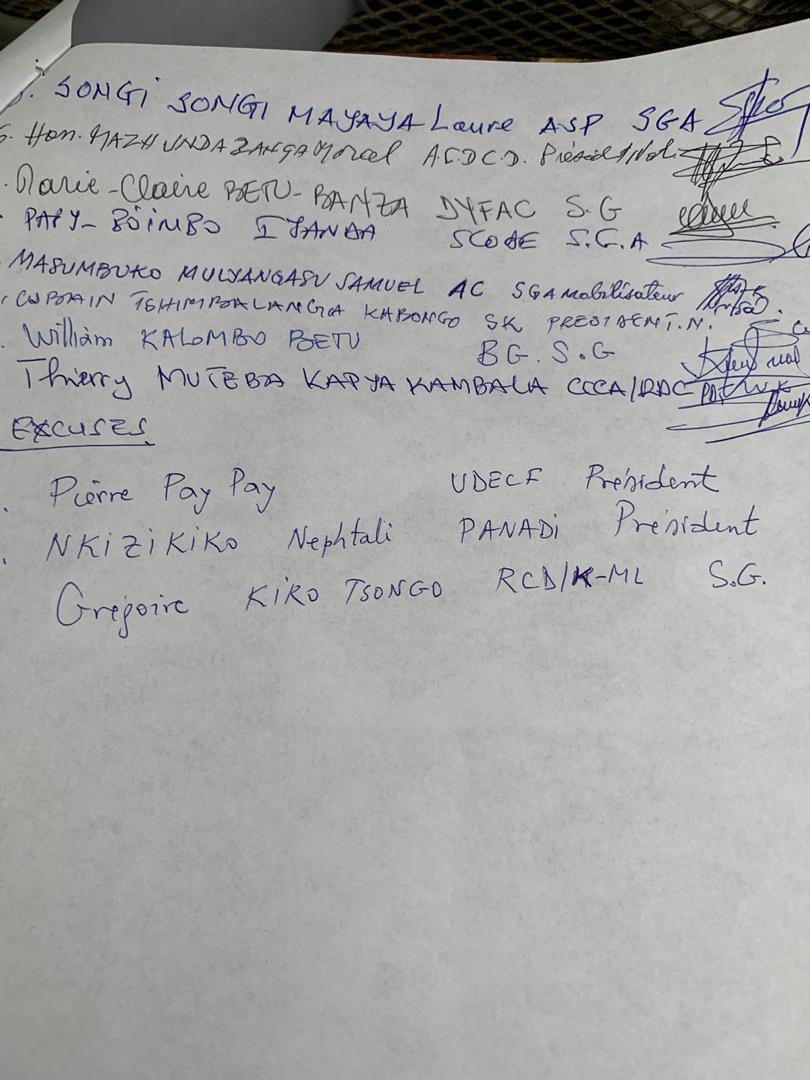 SONGI SONGI MAYAYA Laure ASP SGA
Hon. A.C.D.C.D.
Marie-Claire BETU-BANZA DYFAC S.G
PAPY-BOIMBO SCODE S.G.A
MASUMBUKO MULYANGASU SAMUEL AC SGA mobilisateur
TSHIMBALANGA KABONGO SK PRESIDENT.N.
William KALOMBO BETU BG.S.G
Thierry MUTEBA KAPYA KAMBALA CCCA/RDC
EXCUSES
Pierre Pay Pay UDECF Président
NKIZIKIKO Nephtali PANADI Président
Grégoire KIRO TSONGO RCD/K-ML S.G.